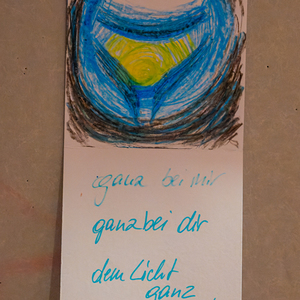 ganz bei mir
ganz bei dir
dem Licht
ganz